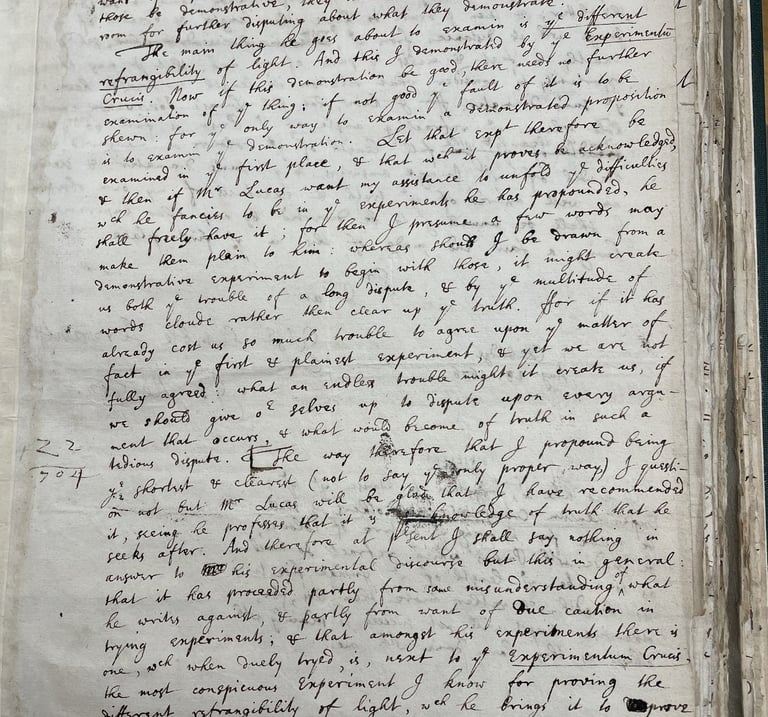 those be demonstrative, they
room for further disputing about what they demonstrate.
The main thing he goes about to examin is yᵉ different
refrangibility of light. And this I demonstrated by yᵉ Experimentū
Crucis. Now if this demonstration be good, there needs no further
examination of yᵉ thing; if not good yᵉ fault of it is to be
shewn: for yᵉ only way to examin a demonstrated proposition
is to examin yᵉ demonstration. Let that expᵗ therefore be
examined in yᵉ first place, & that wᶜʰ it proves be acknowledged,
& then if Mʳ Lucas want my assistance to unfold yᵉ difficulties
wᶜʰ he fancies to be in yᵉ experiments he has propounded, he
shall freely have it; for then I presume a few words may
make them plain to him: whereas should I be drawn from a
demonstrative experiment to begin with those, it might create
us both yᵉ trouble of a long dispute, & by yᵉ multitude of
words cloude rather then clear up yᵉ truth. ffor if it has
already cost us so much trouble to agree upon yᵉ matter of
fact in yᵉ first & plainest experiment, & yet we are not
fully agreed: what an endless trouble might it create us, if
we should give oʳ selves up to dispute upon every argu-
ment that occurs, & what would become of truth in such a
tedious dispute. [The way therefore that I propound being
yᵉ shortest & clearest (not to say yᵉ only proper way) I questi-
on not but Mʳ Lucas will be glad that I have recommended
it, seeing he professes that it is knowledge of truth that he
seeks after. And therefore at pʳsent I shall say nothing in
answer to his experimental discourse but this in general:
that it has proceeded partly from some misunderstanding of what
he writes against, & partly from want of due caution in
trying experiments; & that amongst his experiments there is
one, wᶜʰ when duely tryed, is, next to yᵉ Experimentum Crucis,
the most conspicuous Experiment I know for proving the
different refrangibility of light, wᶜʰ he brings it to prove
22
704